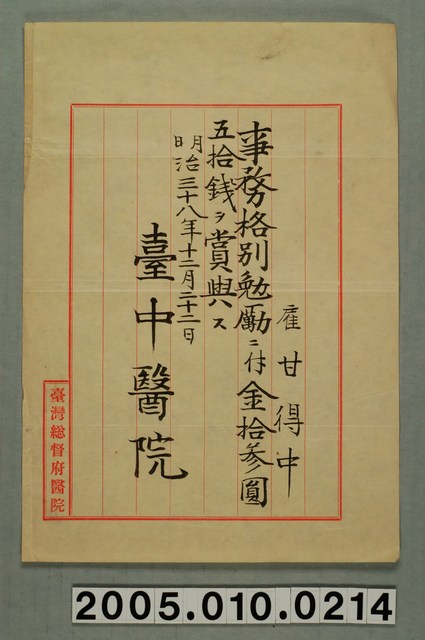 雇 甘得中
事務格別勉勵ニ付金拾參圓
五拾錢ヲ賞與ス
明治三十八年十二月二十二日
臺中醫院
臺灣総督府醫院
2005.010.0214